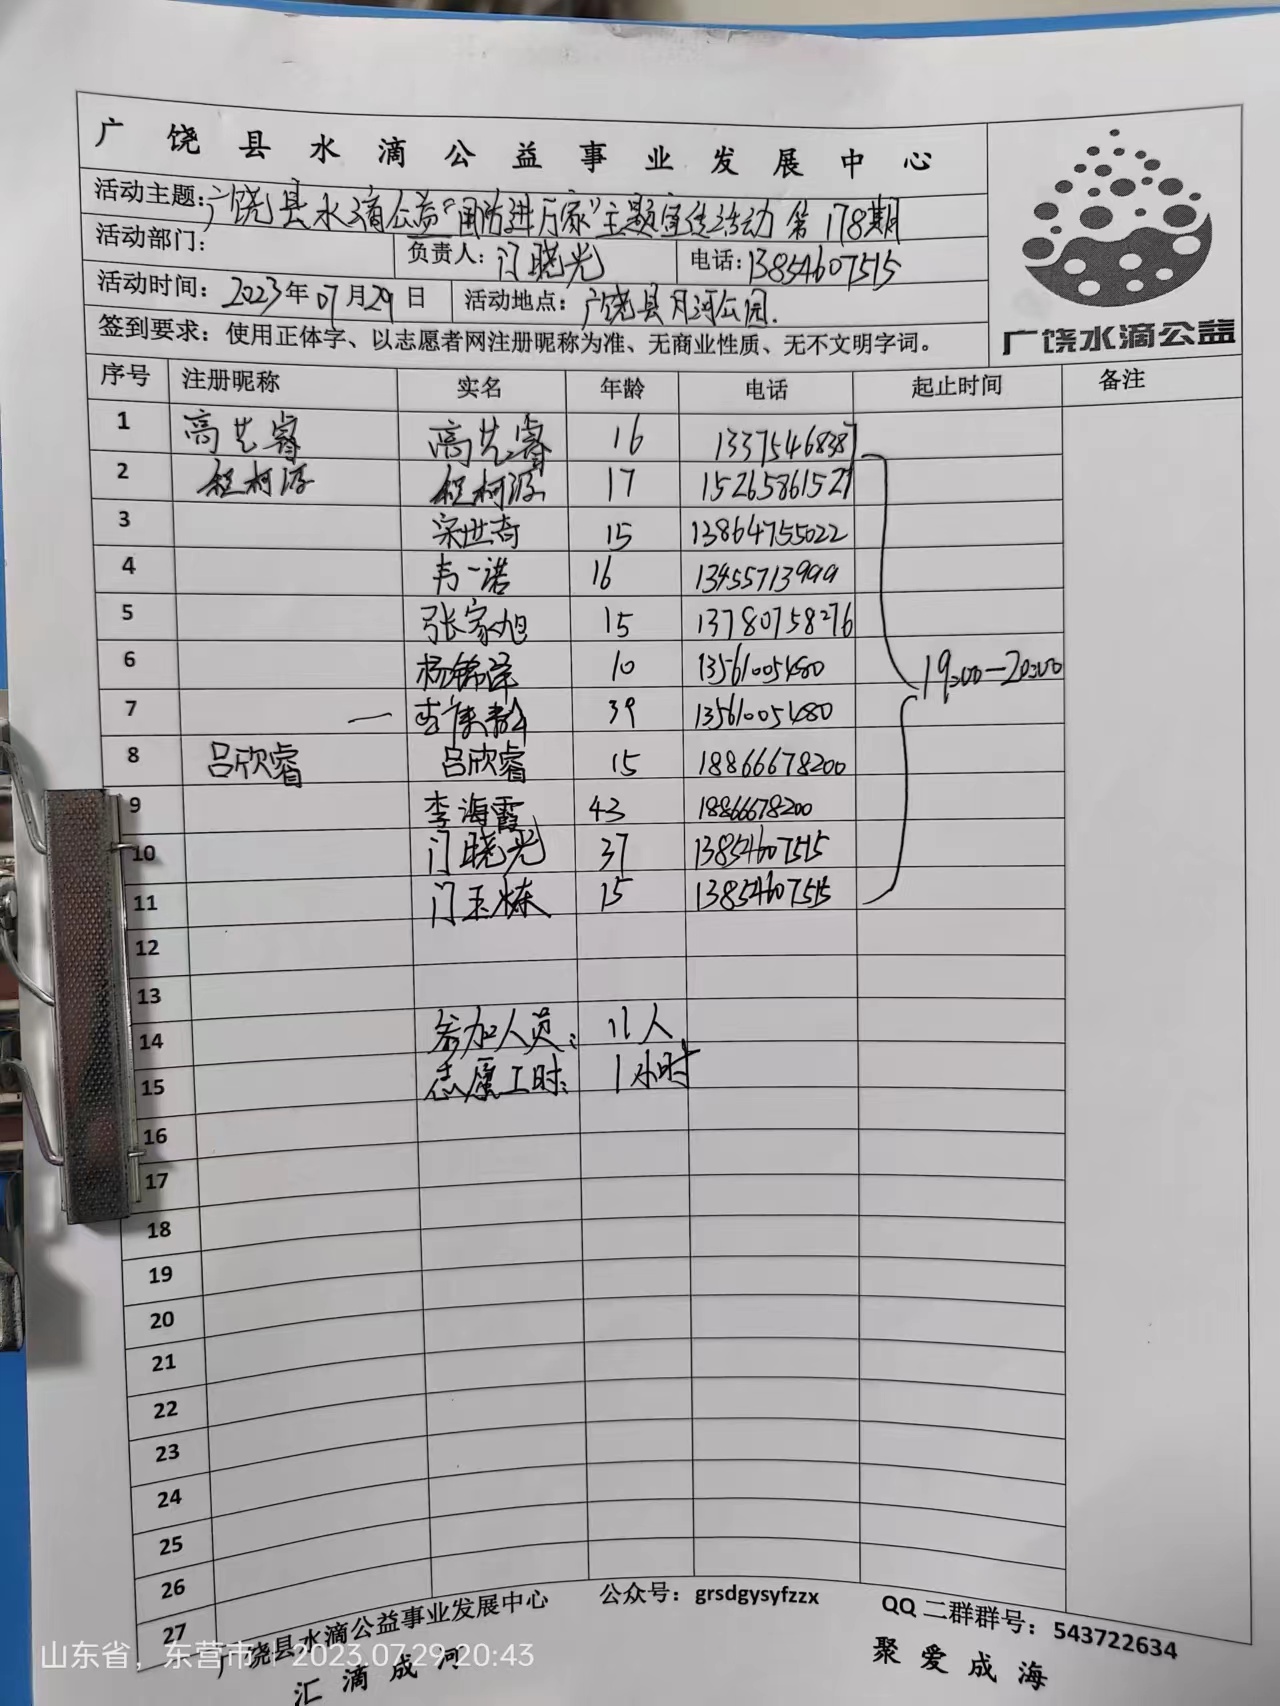 广饶县水滴公益事业发展中心
活动主题：广饶县水滴公益“国防进万家”主题宣传活动 第178期
活动部门： 负责人：门晓光 电话：13854607515
活动时间：2023年07月29日 活动地点：广饶县月河公园.
签到要求：使用正体字、以志愿者网注册昵称为准、无商业性质、无不文明字词。
广饶水滴公益
序号 注册昵称 实名 年龄 电话 起止时间 备注
1 高艺睿 高艺睿 16 13375468387
2 程柯源 程柯源 17 15265861527
3 宋世奇 15 13864755022
4 韦一诺 16 13455713999
5 张家旭 15 13780758276
6 杨锦泽 10 13561005480 19:00—20:00
7 39 13561005480
8 吕欣睿 吕欣睿 15 18866678200
9 李海霞 43 18866678200
10 门晓光 37 13854607515
11 门玉栋 15 13854607515
12
13
14 参加人员： 11人
15 志愿工时： 1小时
16
17
18
19
20
21
22
23
24
25
26
27
广饶县水滴公益事业发展中心 公众号：grsdgysyfzzx QQ二群群号：543722634
汇滴成河 聚爱成海
山东省，东营市 2023.07.29 20:43